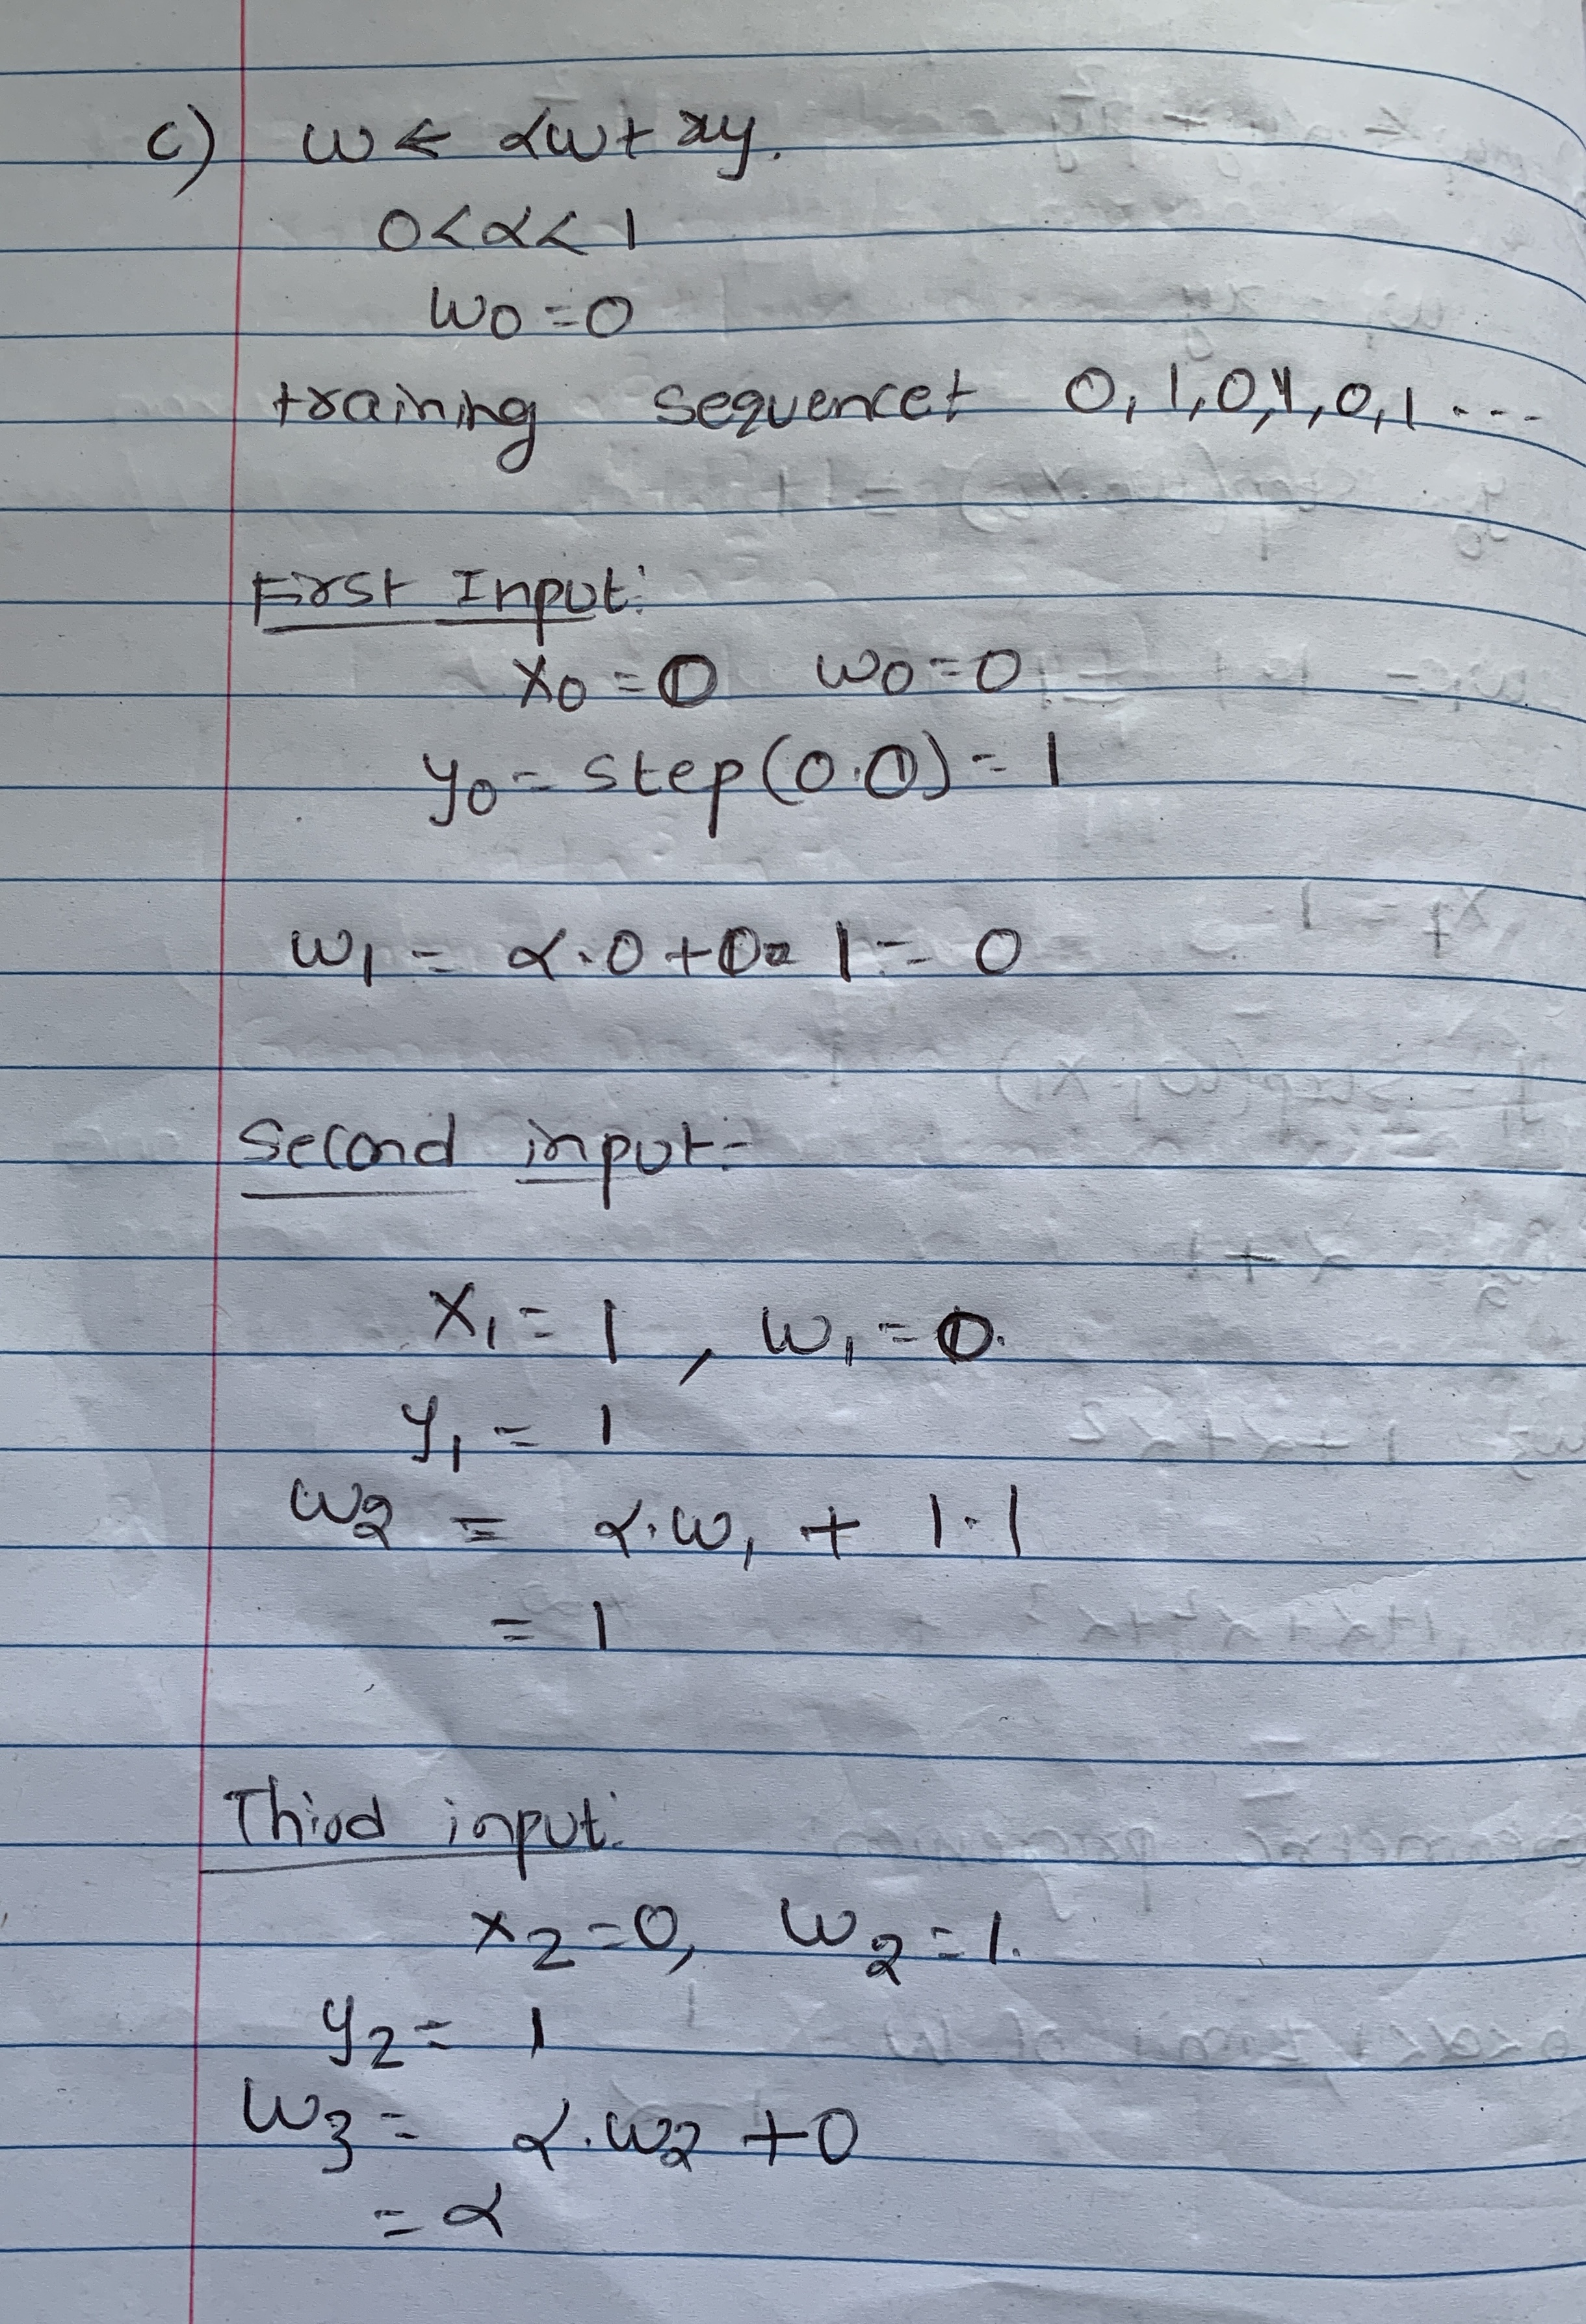 c) w ← αw + xy.
0<α<1
w0=0
training sequence 0,1,0,1,0,1...
First Input:
x0=0 w0=0
y0=step(0.0)=1
w1 = α.0+0. 1 = 0
Second input:
x1=1, w1=0.
y1=1
w2 = α.w1 + 1.1
= 1
Third input:
x2=0, w2=1.
y2=1
w3= α.w2 +0
= α